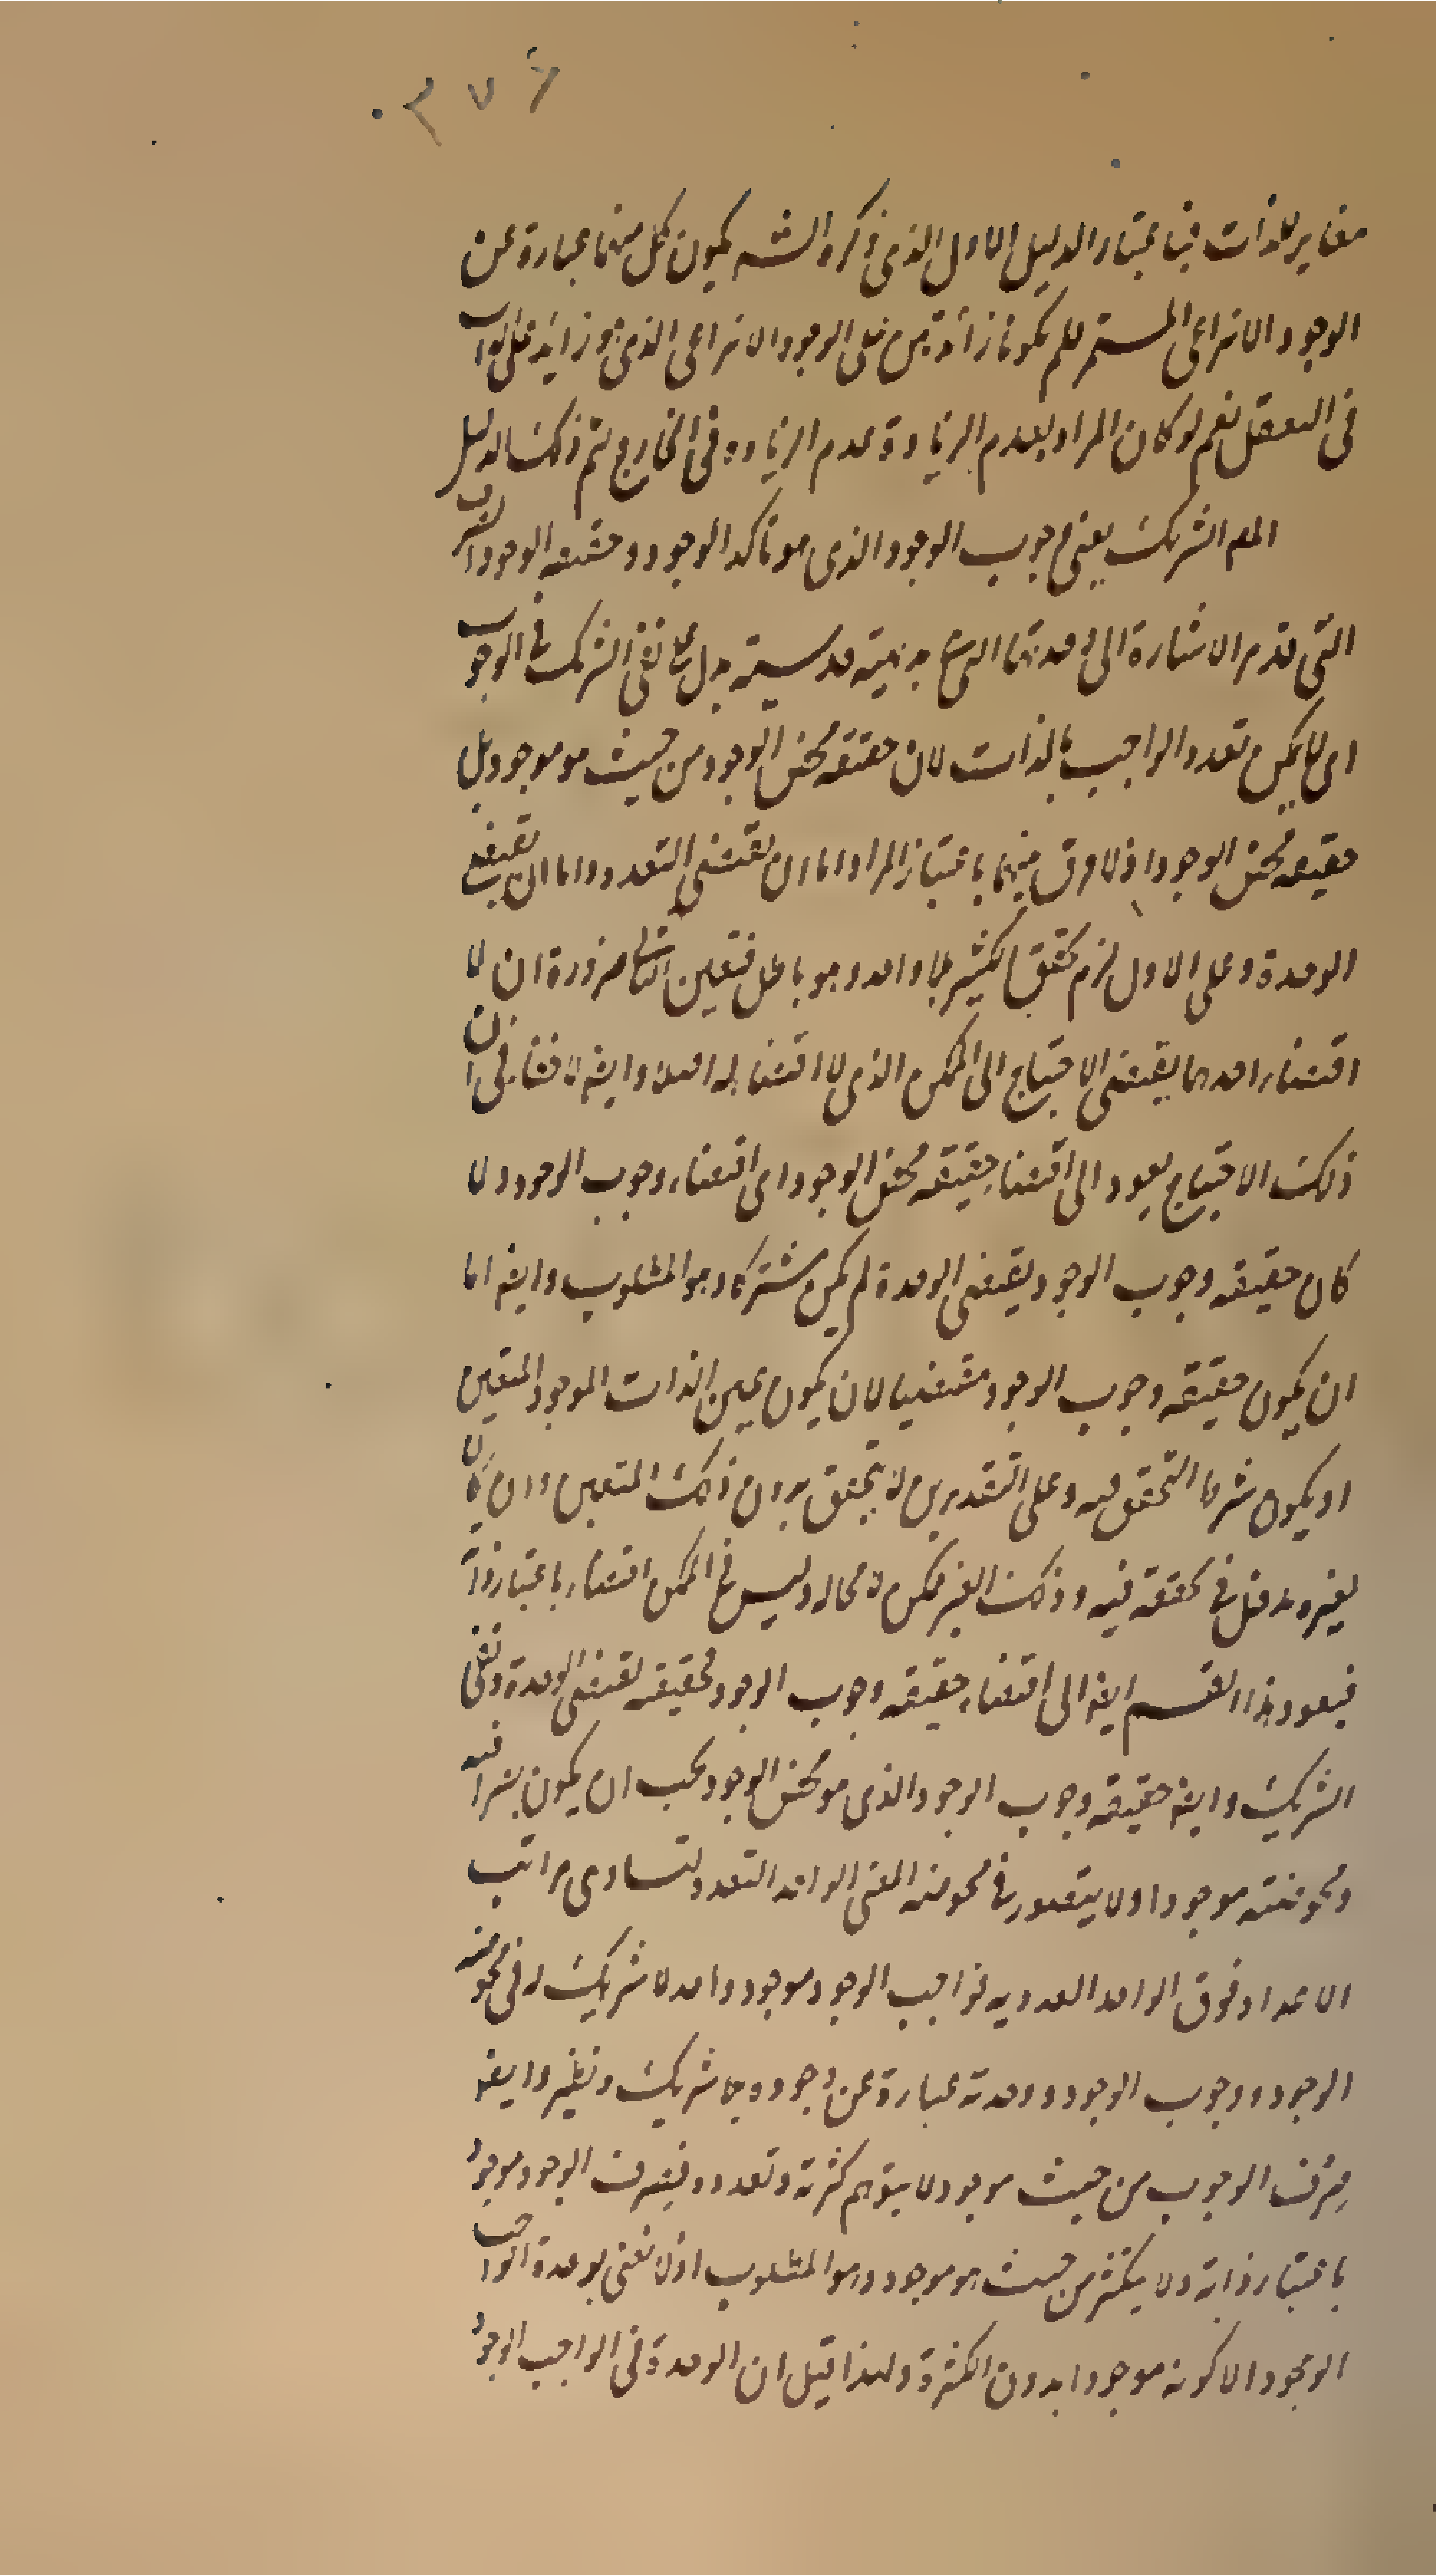 ٣٧٤
مغاير للذات فباعتبار الدليل الاول الذى ذكره الشه يكون كل منهما عبارة عن
الوجود الانتزاعى المستمر فلم يكونا زائدين على الوجود الانتزاعى الذى هو زائد على الواجب
فى التعقل نعم لو كان المراد بعدم الزيادة عدم الزيادة فى الخارج يتم ذلك الدليل
الشريك يعنى وجوب الوجود الذى هو تاكد الوجود وحقيقه الوجود
التى قدم الاشارة الى بديهية قدسيته يدل على نفى الشريك فى الوجوب
اى لا يمكن تعدد الواجب بالذات لان حقيقه محض الوجود من حيث هو موجود بل
حقيقه محض الوجود اذ لا فرق بينهما باعتبار المراد اما ان يقتضى التعدد واما ان يقتضى
الوحدة وعلى الاول لزم تحقق الكثير بلا واحد وهو باطل فتعين الثانى ضرورة ان لا
اقتضاء احدهما يقتضى الاحتياج الى الممكن الذى لا اقتضاء له اصلا وايضا لا خفاء فى ان
ذلك الاحتياج يعود الى اقتضاء حقيقه محض الوجود اى اقتضاء وجوب الوجود ولا
كان حقيقه وجوب الوجود يقتضى الوحدة لم يكن مشتركا وهو المطلوب وايضا اما
ان يكون حقيقه وجوب الوجود مقتضيا لان يكون عين الذات الموجود المتعين
او يكون شرطا لتحقق فيه وعلى التقديرين لا يتحقق بدون ذلك المتعين وان كان
لغيره مدخل فى تحققه فيه وذلك الغير ممكن لا محاله وليس فى الممكن اقتضاء باعتبار ذاته
فيعود هذا القسم ايضا الى اقتضاء حقيقه وجوب الوجود فحقيقه تقتضى الوحدة ونفى
الشريك وايضا حقيقه وجوب الوجود الذى هو محض الوجود يجب ان يكون بصرافته
ومحوضته موجودا ولا يتصور فى محوضة المعنى الواحد التعدد ولتساوى مراتب
الاعداد فوق الواحد العدديه فواجب الوجود موجود واحد لا شريك له فى محوضة
الوجود ووجوب الوجود ووحدته عبارة عن وجوده بلا شريك ونظير وايضا
صرف الوجوب من حيث موجود لا يتوهم كثرته وتعدده فصرف الوجود موجود
باعتبار ذاته ولا يتكثر من حيث هو موجود وهو المطلوب اذ لا نعنى بوحدة الواجب
الوجود الا كونه موجودا بدون الكثرة ولهذا قيل ان الوحدة فى الواجب الوجود